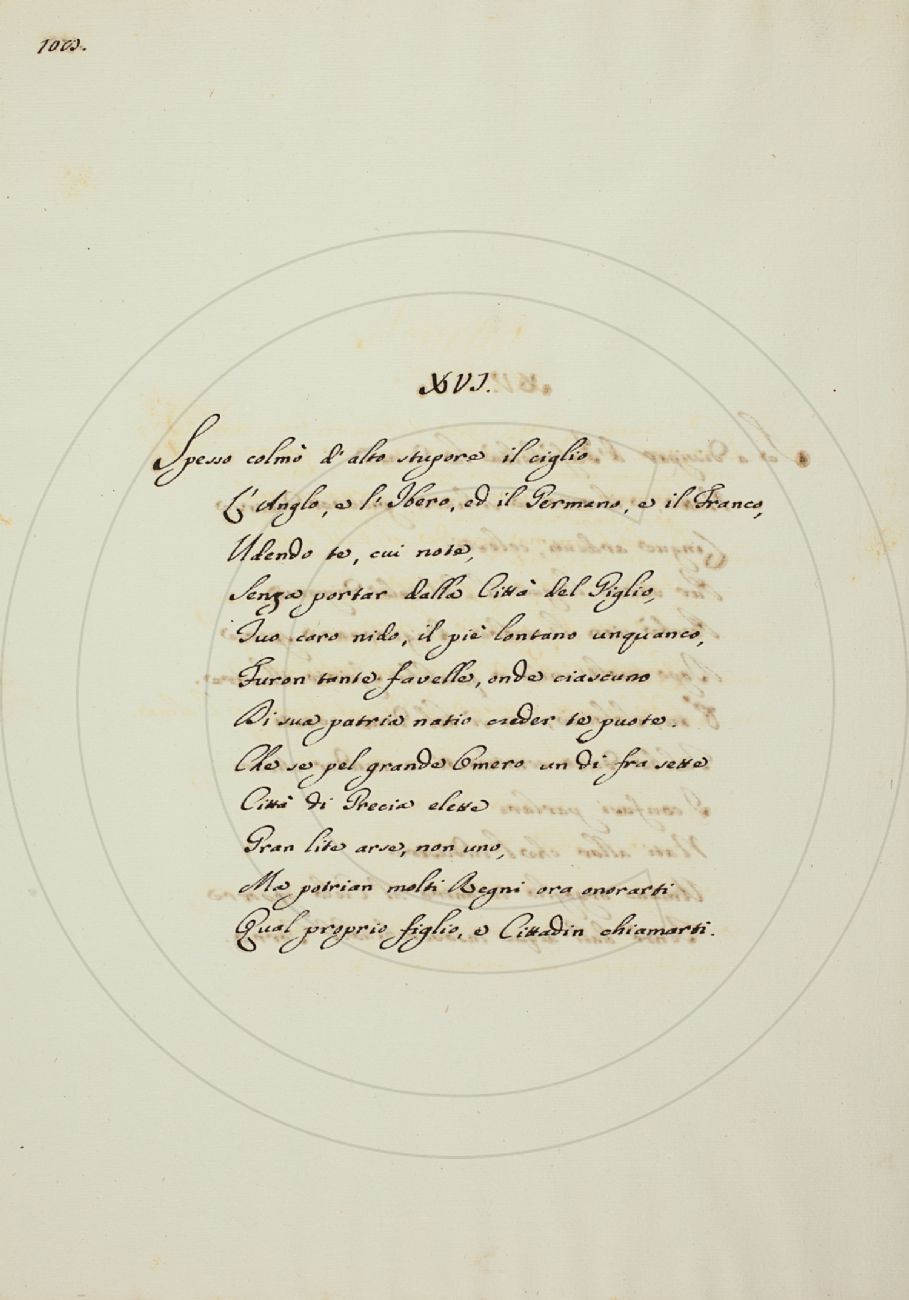 XVI.
Spesso colmò d'alto stupore il ciglio
L'Anglo, e l'Ibero, ed il Germano, e il Franco,
Udendo te, cui note,
Senza portar dalla Città del Giglio,
Tuo caro nido, il piè lontano unquanco,
Furon tante favelle, onde ciascuno
Di sua patria natio creder te puote.
Che se pel grande Omero un di fra sette
Città di Grecia elette
Gran lite arse, non uno,
Ma potrian molti Regni ora onorarti
Qual proprio figlio, e Cittadin chiamarti.